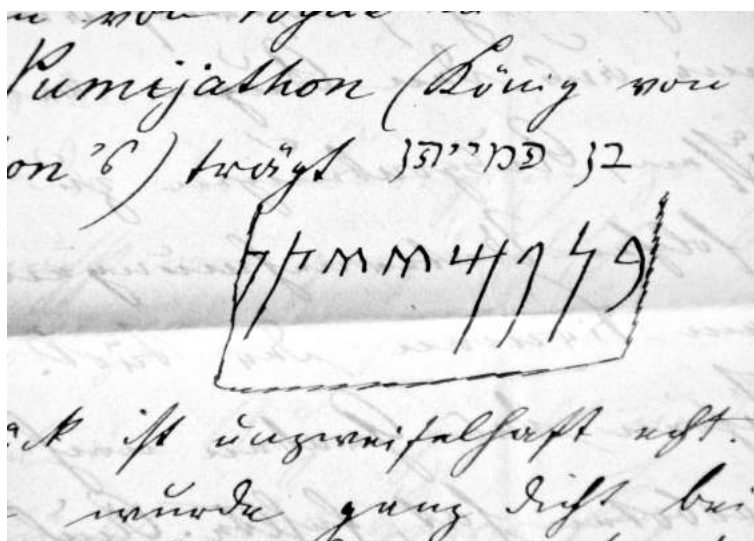 von Vogüé
Pumijathon (König von
on's) trägt בן פמייתן
𐤁𐤍𐤐𐤌𐤉𐤉𐤕𐤍
ist unzweifelhaft echt.
wurde ganz dicht bei